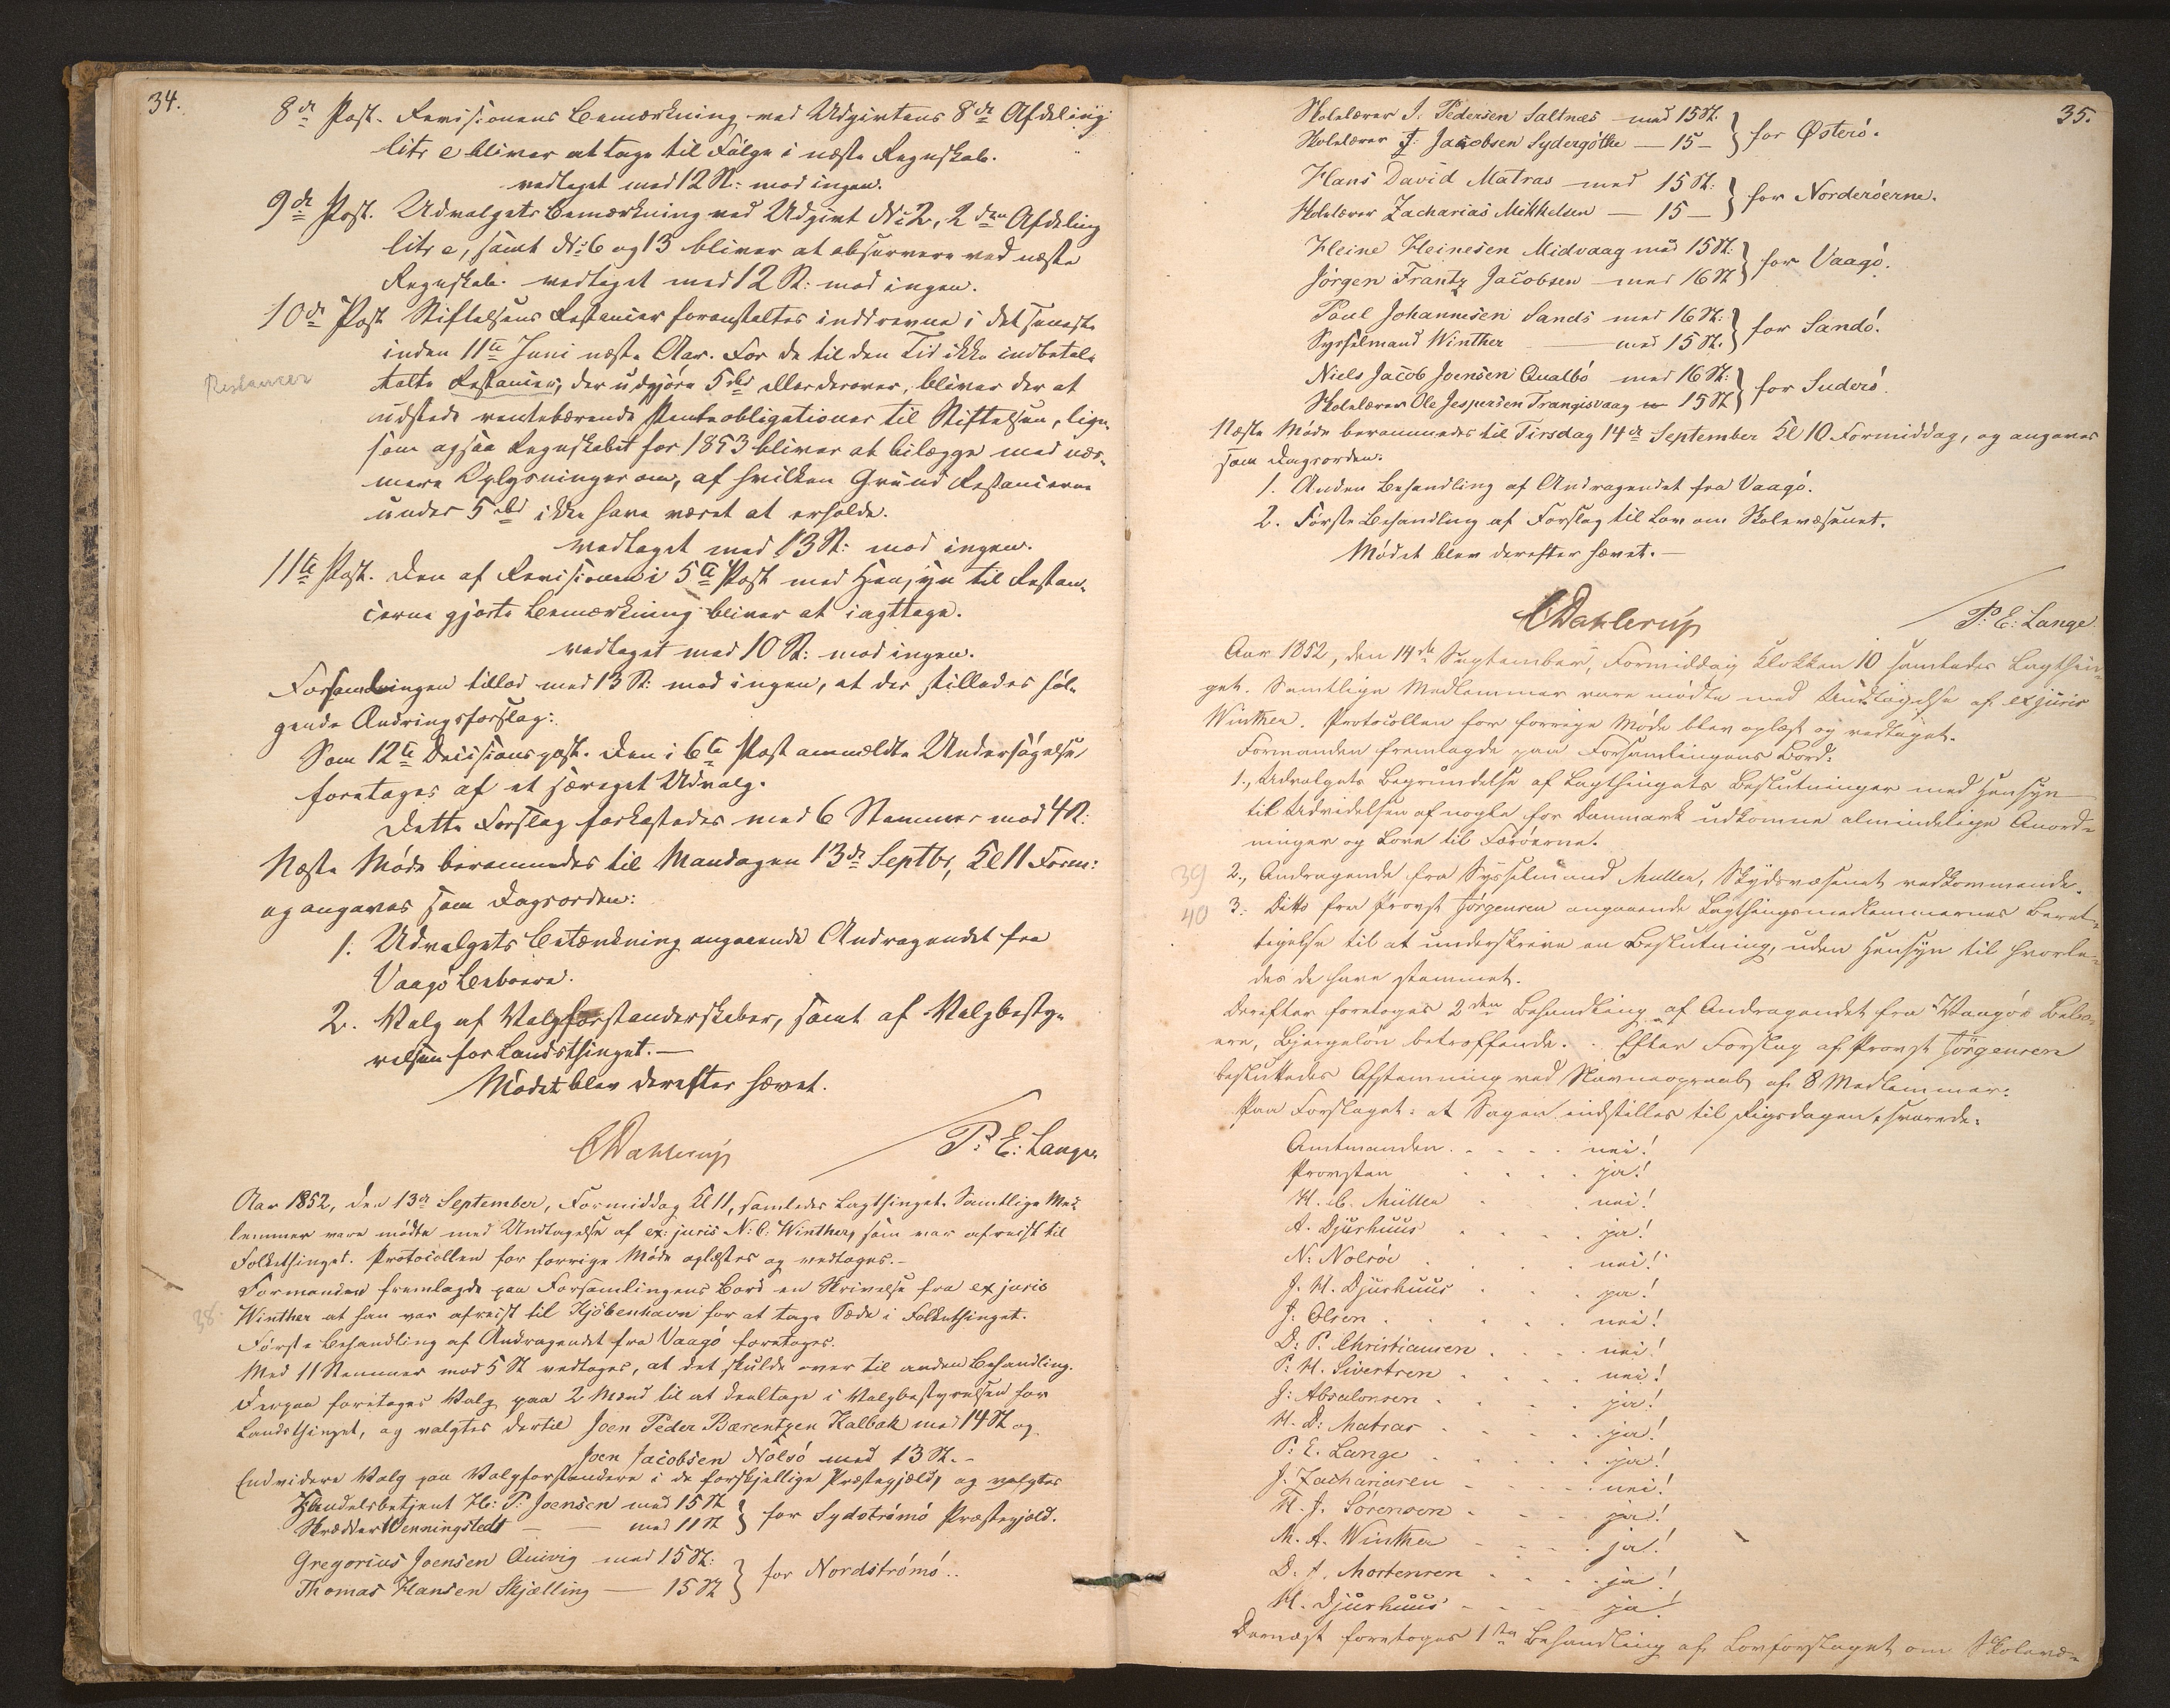 34.
8de Post. Revisionens Bemærkning ved Udgivtens 8de Afdeling
litr e bliver at tage til Følge i næste Regnskab.
vedtaget med 12 St: mod ingen.
9de Post. Udvalgets Bemærkning ved Udgivt No 2, 2den Afdeling
litr e, samt No: 6 og 13 bliver at observere ved næste
Regnskab. vedtaget med 12 St: mod ingen.
10de Post Stiftelsens Restancer foranstaltes inddrevne i det seneste
inden 11te Juni næste Aar. For de til den Tid ikke indbetal-
Restancer
talte Restancer, der udgjøre 5 rbd eller derover, bliver der at
udstede rentebærende Panteobligationer til Stiftelsen, lige-
som ogsaa Regnskabet for 1853 bliver at bilægge med nær-
mere Oplysninger om, af hvilken Grund Restancerne
under 5 rbd ikke have været at erholde.
vedtaget med 13 St: mod ingen.
11te Post. Den af Revisionen i 5te Post med Hensyn til Restan-
cerne gjorte Bemærkning bliver at iagttage.
vedtaget med 10 St: mod ingen.
Forsamlingen tillod med 13 St: mod ingen, at der stilledes føl-
gende Ændringsforslag:
Som 12te Decisionspost. Den i 6te Post anmeldte Undersøgelse
foretages af et særeget Udvalg.
Dette Forslag forkastedes med 6 Stemmer mod 4 St:
Næste Møde berammedes til Mandagen 13de Septbr, Kl 11 Form:
og angaves som Dagsorden:
1. Udvalgets Betænkning angaaende Andragendet fra
Vaagø Beboere.
2. Valg af Valgforstanderskaber, samt af Valgbesty-
relsen for Landsthinget. —
Mødet blev derefter hævet.
CDahlerup
P: E: Lange
Aar 1852, den 13de September, Formiddag Kl 11, samledes Lagthinget. Samtlige Med-
lemmer vare mødte med Undtagelse af ex: juris N: C: Winther, som var afreist til
Folkethinget. Protocollen for forrige Møde oplæstes og vedtoges. -
Formanden fremlagde paa Forsamlingens Bord en Skrivelse fra ex juris
38.
Winther at han var afreist til Kjøbenhavn for at tage Sæde i Folkethinget.
Første Behandling af Andragendet fra Vaagø foretoges.
Med 11 Stemmer mod 5 St vedtoges, at det skulde over til anden Behandling.
Derpaa foretoges Valg paa 2 Mænd til at deeltage i Valgbestyrelsen for
Landsthinget, og valgtes dertil Joen Peder Bærentzen Kalbak med 14 St og
Joen Jacobsen Nolsø med 13 St. -
Endvidere Valg paa Valgforstandere i de forskjellige Præstegjæld, og valgtes
Handelsbetjent H: P: Joensen med 15 St
Skrædder Wenningstedt — — med 11 St } for Sydstrømø Præstegjeld.
Gregorius Joensen Quivig med 15 St:
Thomas Hansen Skjælling — 15 St } for Nordstrømø..
35.
Skolelærer J. Pedersen Saltnes med 15 St.
Skolelærer J: Jacobsen Sydergøthe — 15 — } for Østerø.
Hans David Matras med 15 St:
Skolelærer Zacharias Mikkelsen — 15 — } for Norderøerne.
Heine Heinesen Midvaag med 15 St:
Jørgen Frantz Jacobsen med 16 St } for Vaagø.
Poul Johannesen Sands med 16 St:
Sysselmand Winther — med 15 St. } for Sandø.
Niels Jacob Joensen Qualbø med 16 St:
Skolelærer Ole Jespersen Trangisvaag 15 St } for Suderø.
Næste Møde berammedes til Tirsdag 14de September Kl 10 Formiddag, og angaves
som Dagsorden:
1. Anden Behandling af Andragendet fra Vaagø.
2. Første Behandling af Forslag til Lov om Skolevæsenet.
Mødet blev derefter hævet. —
CDahlerup
P: E: Lange
Aar 1852, den 14de September, Formiddag Klokken 10 samledes Lagthin-
get. Samtlige Medlemmer vare mødte med Undtagelse af exjuris
Winther. Protocollen for forrige Møde blev oplæst og vedtaget.
Formanden fremlagde paa Forsamlingens Bord:
1., Udvalgets Begrundelse af Lagthingets Beslutninger med Hensyn
til Udvidelsen af nogle for Danmark udkomne almindelige Anord-
ninger og Love til Færøerne.
39
2., Andragende fra Sysselmand Müller, Skydsvæsenet vedkommende.
40
3: Ditto fra Provst Jørgensen angaaende Lagthingsmedlemmernes Beret-
tigelse til at underskrive en Beslutning, uden Hensyn til hvorle-
des de have stemmet.
Derefter foretoges 2den Behandling af Andragendet fra Vaagøs Bebo-
ere, Bjergeløn betræffende. - Efter Forslag af Provst Jørgensen
besluttedes Afstemning ved Navneopraab af 8 Medlemmer:
Paa Forslaget: at Sagen indstilles til Rigsdagen, svarede:
Amtmanden . . . . nei!
Provsten . . . . ja!
H. C. Müller . . . nei!
A. Djurhuus . . . . ja!
N: Nolsøe . . . . nei!
J. H. Djurhuus . . . ja!
J: Olsen . . . . . nei!
D: P. Christiansen . . . . nei!
P: H. Sivertsen . . . . nei!
J: Absalonsen . . . . ja!
H. D: Matras . . . . . ja!
P: E. Lange . . . . . ja!
J. Zachariasen . . . . . nei!
H. J. Sörensen . . . . ja!
M. A. Winther . . . . ja!
D: J. Mortensen . . . . ja!
H. Djurhuus . . . . ja!
Dernæst foretoges 1ste Behandling af Lovforslaget om Skolevæ-